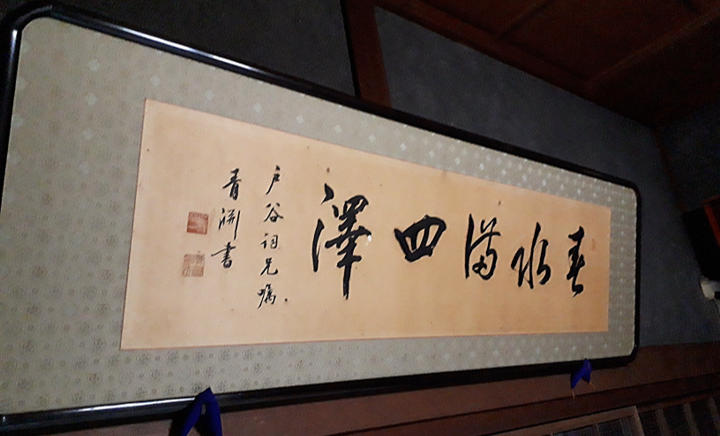 春水満四澤
戸谷詞兄嘱
青淵書